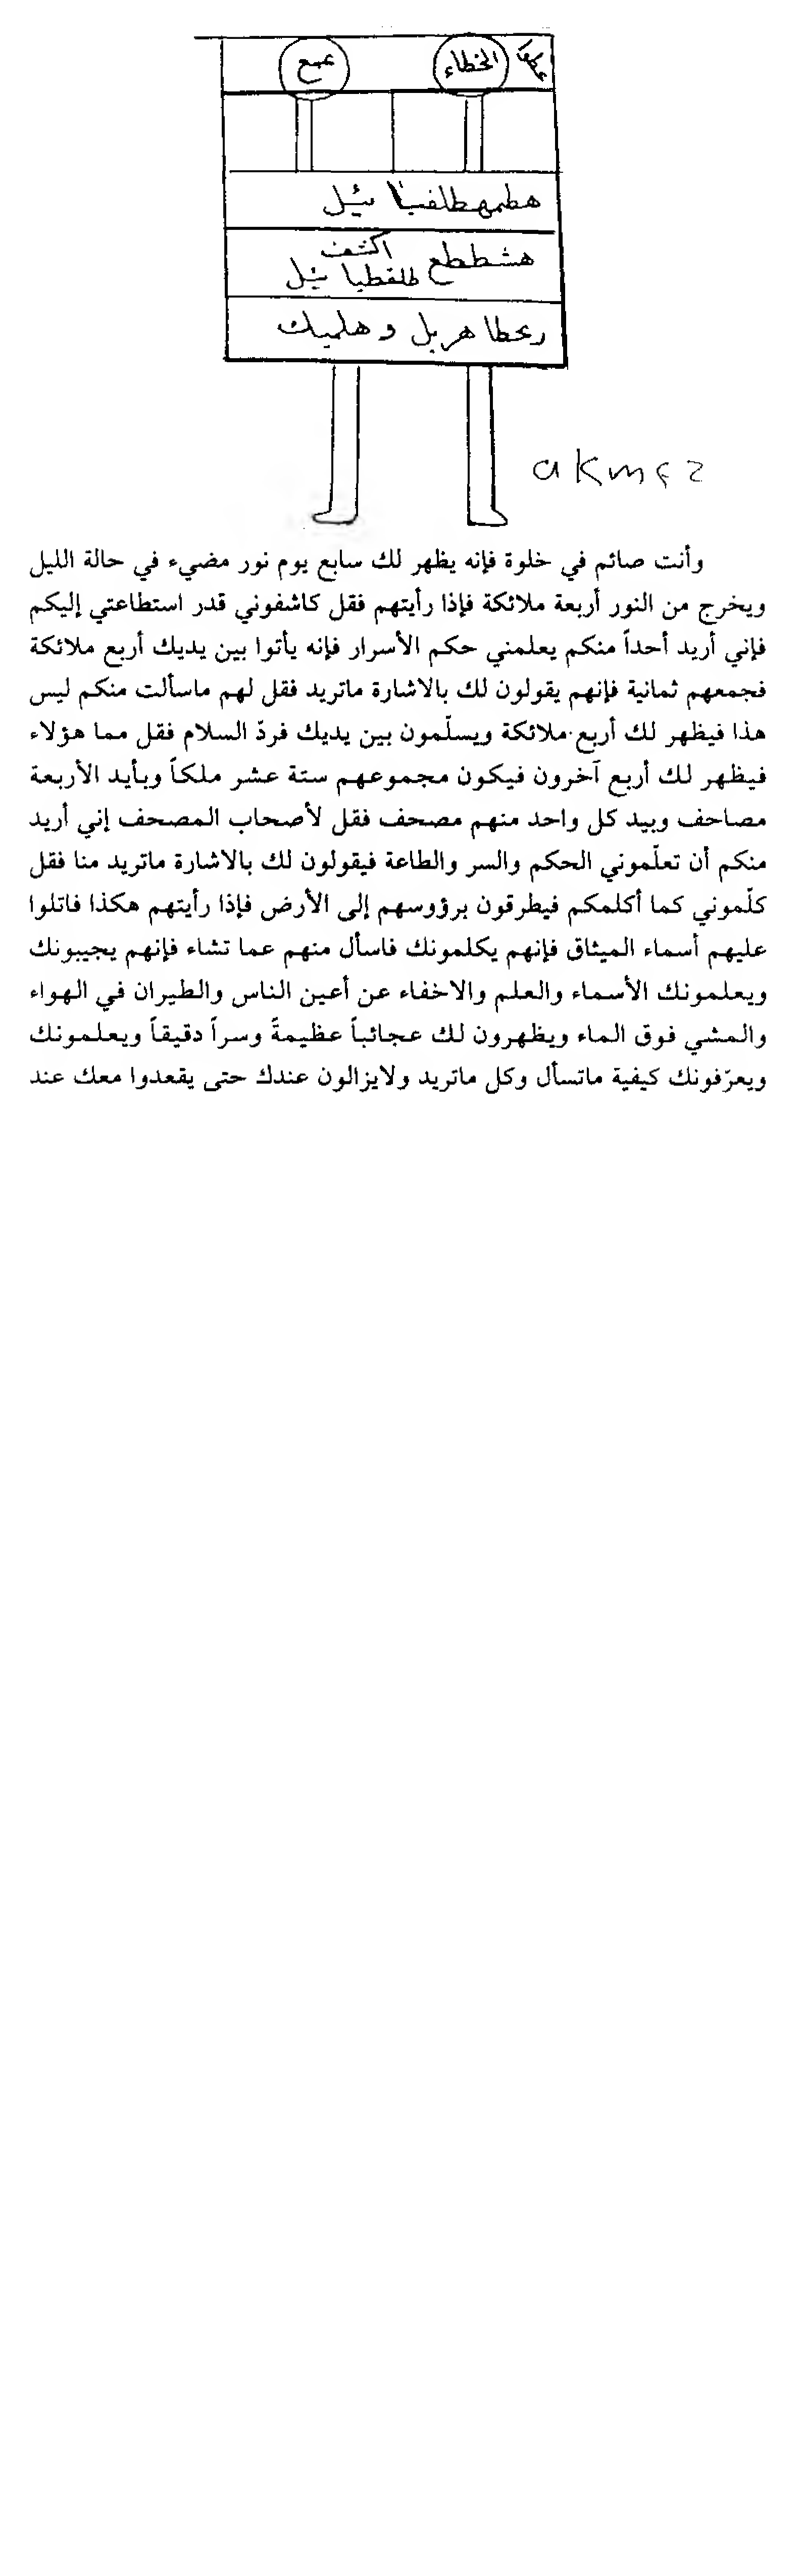 الخطاء عمع
هطمهطلفيا ئيل
هشططع اكشف
طلقطيا ئيل
ريحطا هر يل و هلميك
akm
وأنت صائم في خلوة فإنه يظهر لك سابع يوم نور مضيء في حالة الليل
ويخرج من النور أربعة ملائكة فإذا رأيتهم فقل كاشفوني قدر استطاعتي إليكم
فإني أريد أحداً منكم يعلمني حكم الأسرار فإنه يأتوا بين يديك أربع ملائكة
فجمعهم ثمانية فإنهم يقولون لك بالاشارة ماتريد فقل لهم ماسألت منكم ليس
هذا فيظهر لك أربع ملائكة ويسلّمون بين يديك فردّ السلام فقل مما هؤلاء
فيظهر لك أربع آخرون فيكون مجموعهم ستة عشر ملكاً وبأيد الأربعة
مصاحف وبيد كل واحد منهم مصحف فقل لأصحاب المصحف إني أريد
منكم أن تعلّموني الحكم والسر والطاعة فيقولون لك بالاشارة ماتريد منا فقل
كلّموني كما أكلمكم فيطرقون برؤوسهم إلى الأرض فإذا رأيتهم هكذا فاتلوا
عليهم أسماء الميثاق فإنهم يكلمونك فاسأل منهم عما تشاء فإنهم يجيبونك
ويعلمونك الأسماء والعلم والاخفاء عن أعين الناس والطيران في الهواء
والمشي فوق الماء ويظهرون لك عجائباً عظيمةً وسراً دقيقاً ويعلمونك
ويعرّفونك كيفية ماتسأل وكل ماتريد ولايزالون عندك حتى يقعدوا معك عند